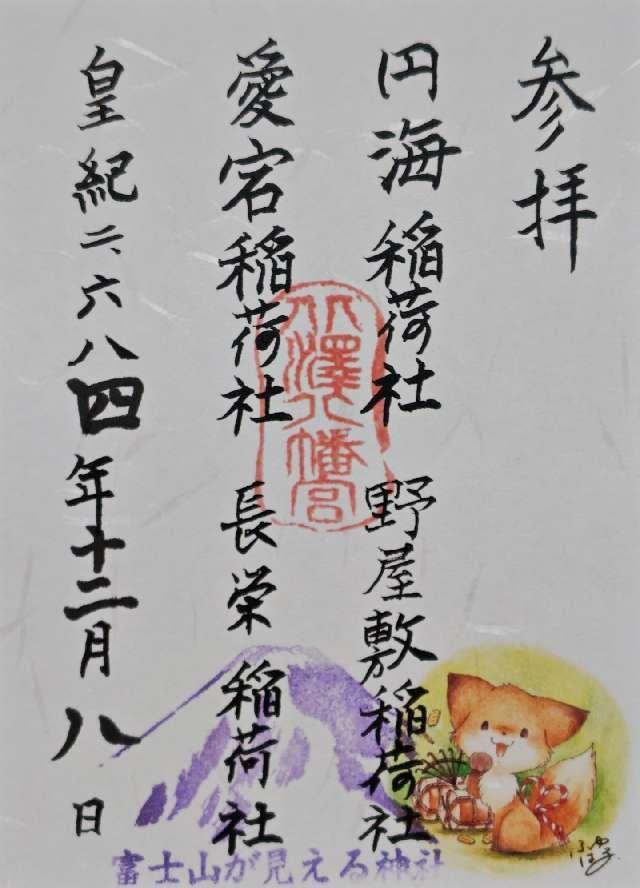 参拝
円海稲荷社 野屋敷稲荷社
愛宕稲荷社 長栄稲荷社
皇紀二、六八四年十二月八日
八幡宮
富士山が見える神社